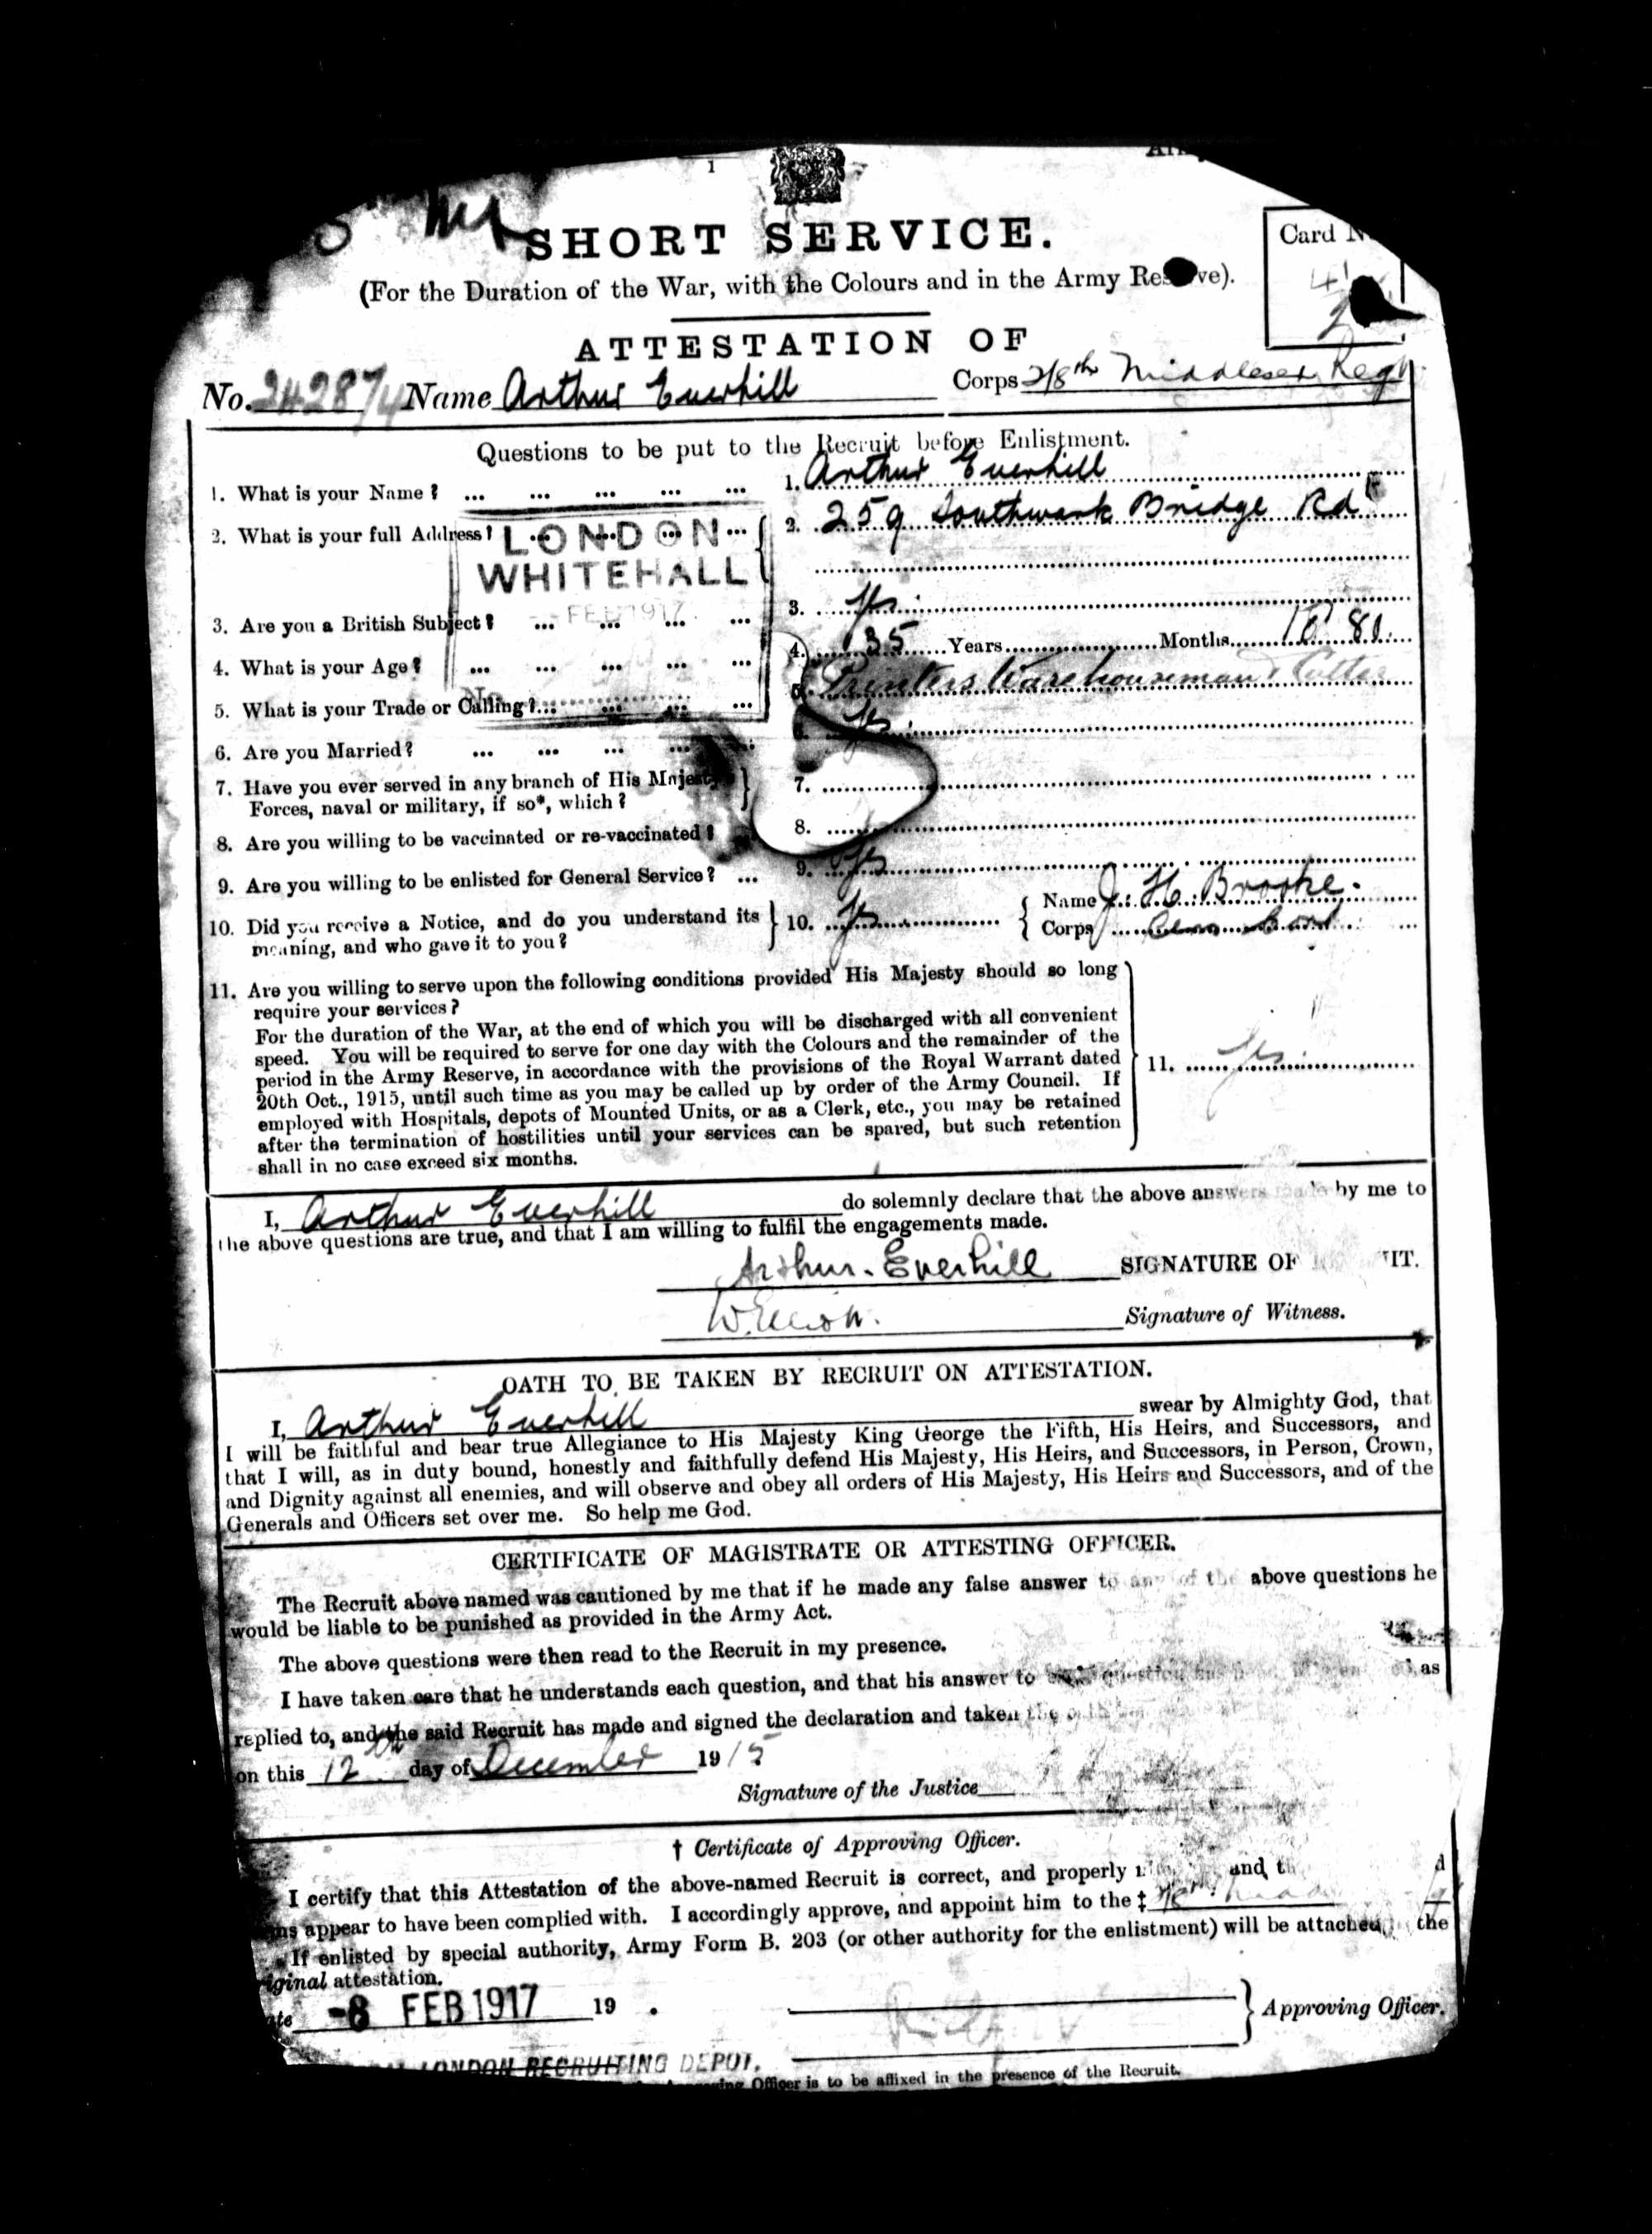 1
SHORT SERVICE.
(For the Duration of the War, with the Colours and in the Army Reserve).
Card No.
ATTESTATION OF
No. 242874 Name Arthur Everhill Corps 2/8th Middlesex Regt.
Questions to be put to the Recruit before Enlistment.
1. What is your Name? ... ... ... ... ... 1. Arthur Everhill
2. What is your full Address? 2. 259 Southwark Bridge Rd
LONDON
WHITEHALL
FEB 1917
3. Are you a British Subject? ... ... ... ... 3. Yes.
4. What is your Age? ... ... ... ... ... 4. 35 Years Months
No
5. What is your Trade or Calling? ... ... ... ... 5. Printers Warehouseman & Cutter
6. Are you Married? ... ... ... ... 6. Yes.
7. Have you ever served in any branch of His Majesty's
Forces, naval or military, if so*, which? } 7.
8. Are you willing to be vaccinated or re-vaccinated? 8.
9. Are you willing to be enlisted for General Service? ... 9. Yes
10. Did you receive a Notice, and do you understand its
meaning, and who gave it to you? } 10. Yes { Name J. H. Brooke.
Corps
11. Are you willing to serve upon the following conditions provided His Majesty should so long
require your services?
For the duration of the War, at the end of which you will be discharged with all convenient
speed. You will be required to serve for one day with the Colours and the remainder of the
period in the Army Reserve, in accordance with the provisions of the Royal Warrant dated
20th Oct., 1915, until such time as you may be called up by order of the Army Council. If
employed with Hospitals, depots of Mounted Units, or as a Clerk, etc., you may be retained
after the termination of hostilities until your services can be spared, but such retention
shall in no case exceed six months.
11. Yes
I, Arthur Everhill do solemnly declare that the above answers made by me to
the above questions are true, and that I am willing to fulfil the engagements made.
Arthur. Everhill SIGNATURE OF
Signature of Witness.
OATH TO BE TAKEN BY RECRUIT ON ATTESTATION.
I, Arthur Everhill swear by Almighty God, that
I will be faithful and bear true Allegiance to His Majesty King George the Fifth, His Heirs, and Successors, and
that I will, as in duty bound, honestly and faithfully defend His Majesty, His Heirs, and Successors, in Person, Crown,
and Dignity against all enemies, and will observe and obey all orders of His Majesty, His Heirs and Successors, and of the
Generals and Officers set over me. So help me God.
CERTIFICATE OF MAGISTRATE OR ATTESTING OFFICER.
The Recruit above named was cautioned by me that if he made any false answer to any of the above questions he
would be liable to be punished as provided in the Army Act.
The above questions were then read to the Recruit in my presence.
I have taken care that he understands each question, and that his answer to each question has been as
replied to, and the said Recruit has made and signed the declaration and taken the
on this 12th day of December 1915
Signature of the Justice
† Certificate of Approving Officer.
I certify that this Attestation of the above-named Recruit is correct, and properly and
appear to have been complied with. I accordingly approve, and appoint him to the ‡ 2/8th
If enlisted by special authority, Army Form B. 203 (or other authority for the enlistment) will be attached the
original attestation.
-8 FEB 1917 19 .
} Approving Officer.
LONDON RECRUITING DEPOT.
Officer is to be affixed in the presence of the Recruit.